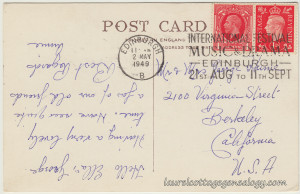 POST CARD
EDINBURGH
2 MAY
1949
B
INTERNATIONAL FESTIVAL
MUSIC & DRAMA
EDINBURGH
21ST AUG TO 11TH SEPT
Hello Ella & George
Having a very lovely
time. Have seen quite
a few of our old friends
Best Regards
Minnie.
2100 Virginia Street
Berkeley
California
U.S.A
laurelcottagegenealogy.com